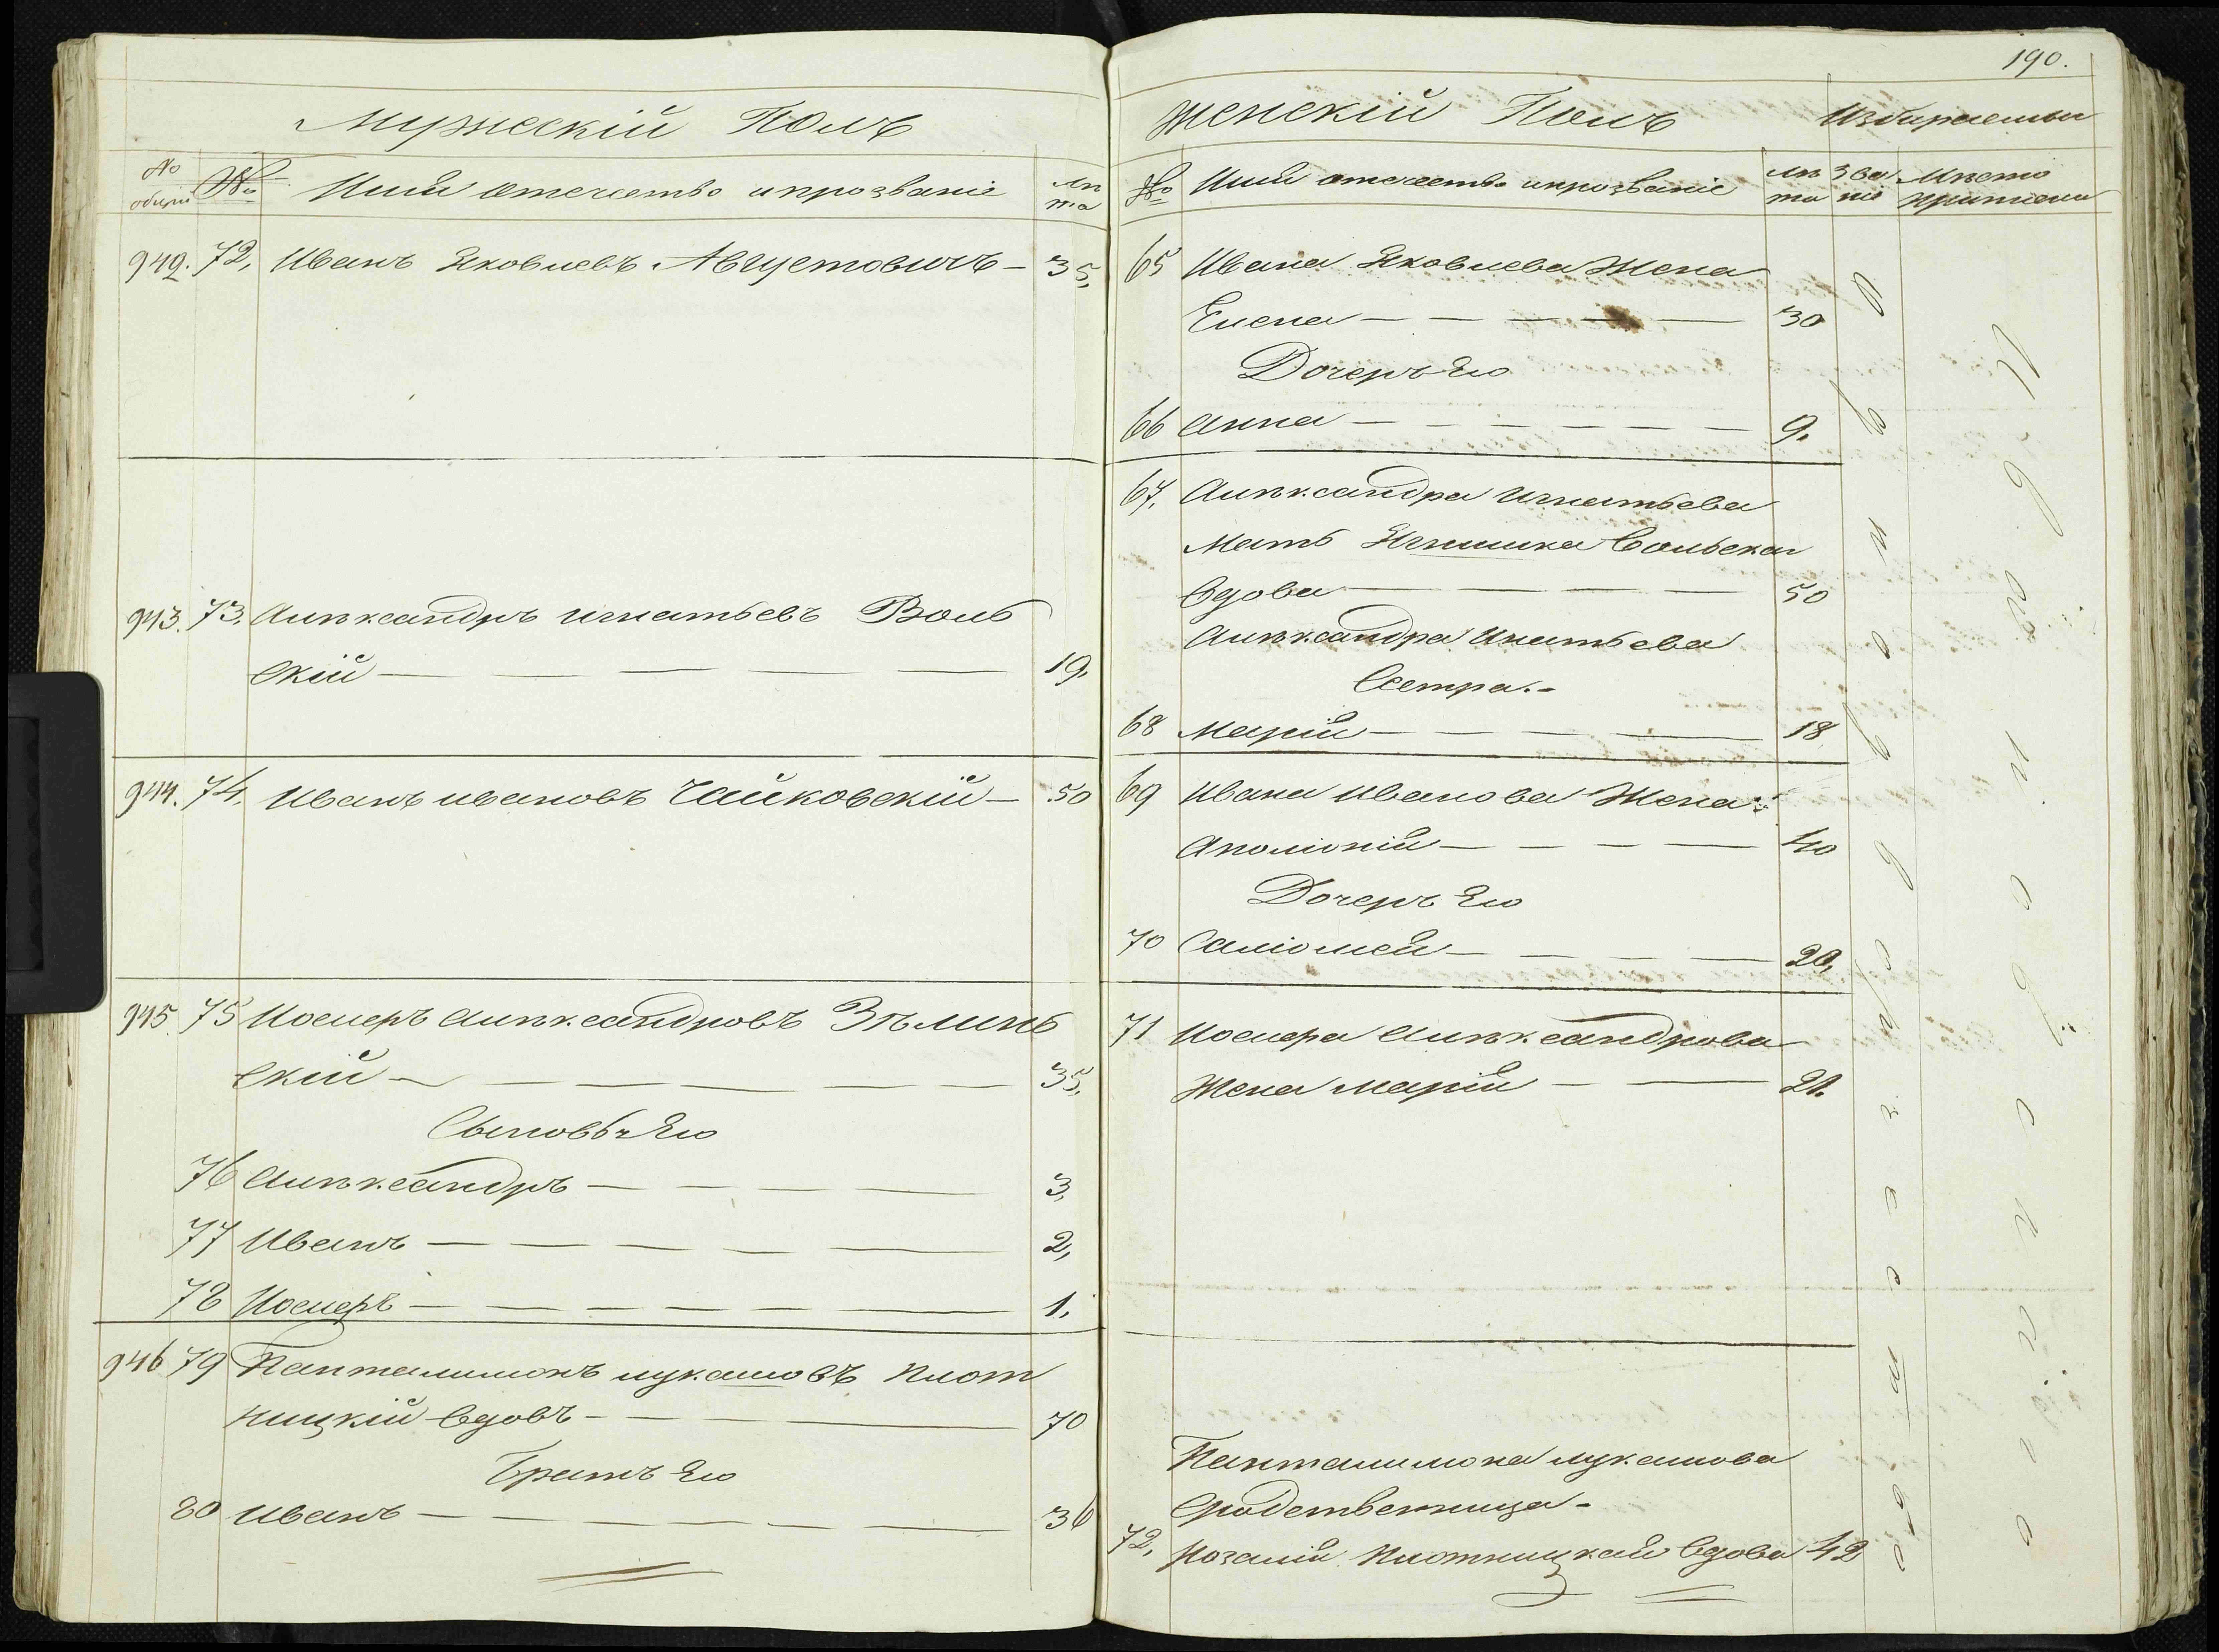 Мужескій Полъ
№ общій
№
Имя отечество и прозваніе
лѣта
942. 72, Иванъ Яковлевъ Августовичъ — 35,
943. 73, Алѣксандръ Игнатьевъ Воль
скій — 19,
944. 74, Иванъ Ивановъ Чайковскій — 50
945. 75 Иосиеръ Алѣксандровъ Зѣлинь
скій — 35,
Сыновья Его
76 Алѣксандръ — 3,
77 Иванъ — 2,
78 Иосиеръ — 1,
946 79 Панталимонъ Лукашовъ Плот
ницкій вдовъ — 70
Братъ Его
80 Иванъ — 36
190.
Женскій Полъ
Избираемыи
№
Имя отечество и прозваніе
лѣта
званіе
Мѣсто
65 Ивана Яковлева Жена
Елена — 30
Дочеръ Его
66 Анна — 9.
67. Алѣксандра Игнатьева
Мать Вольская
Вдова — 50
Алѣксандра Инатьева
Сестра.
68 Марія — 18
69 Ивана Иванова Жена
Аполіонія — 40
Дочеръ Его
70 Саліомея — 20,
71 Иосиера Алѣксандрова
Жена Марія — 21.
Панталимона Лукашова
Сродственница
72, Розалія Плотницкая Вдова 42